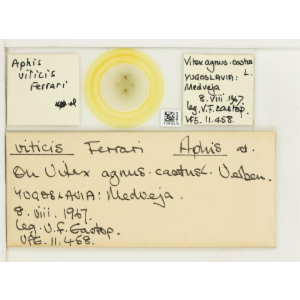 Aphis
viticis
Ferrari
Vitex agnus-castus
L.
YUGOSLAVIA:
Medveja
8.viii.1967
leg. V.F. Eastop.
VFE. 11.458.
viticis Ferrari Aphis
On Vitex agnus-castus L. Verben.
YUGOSLAVIA: Medveja.
8.viii.1967.
leg. V.F. Eastop.
VFE. 11.458.